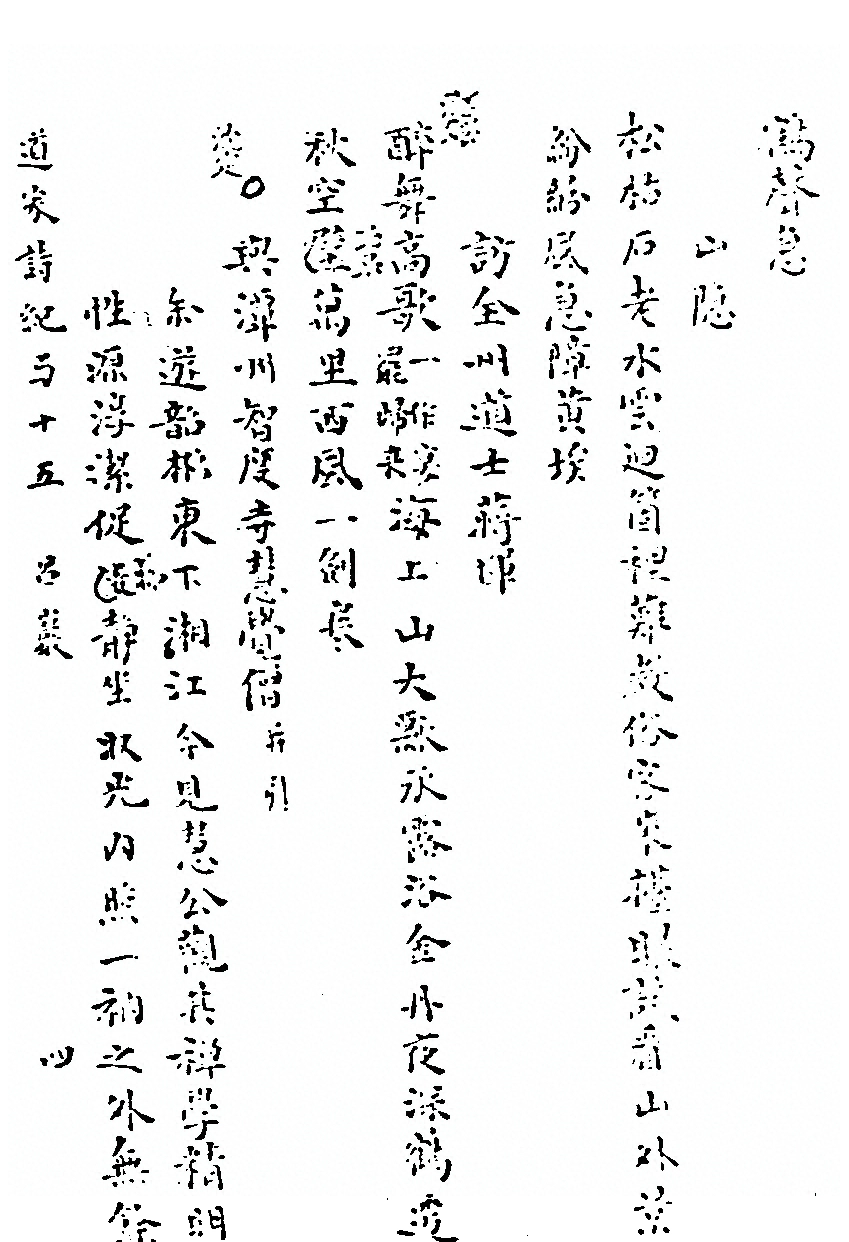 聲急
山隱
松枯石老水雲迴箇裡難教俗客來擡眼試看山外景
紛紛風急障黃埃
訪全州道士蔣暉
醉舞高歌一作宴罷歸來海上山大瓢承露浴金丹夜深鶴透
秋空碧萬里西風一劍寒
與潭州智度寺慧覺僧并引
余遊韶郴東下湘江今見慧公觀其禪學精明
性源淳潔促膝靜坐收光內照一衲之外無餘
道家詩紀弓十五 呂巖 四